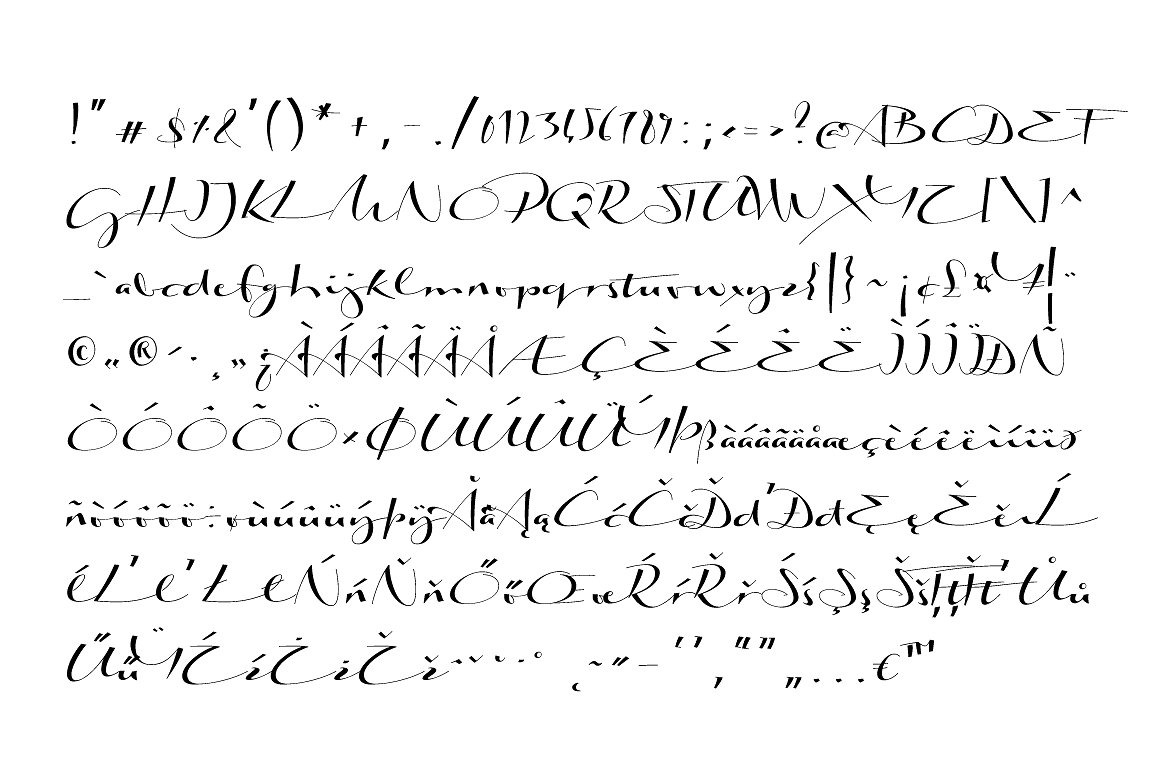 !"#$%&'()*+,-./0123456789:;<=>?@ABCDEF
GHIJKLMNOPQRSTUVWXYZ[\]^
_`abcdefghijklmnopqrstuvwxyz{|}~¡¢£¤¥¦¨
©„®´·¸”¿ÀÁÂÃÄÅÆÇÈÉÊËÌÍÎÏÐÑ
ÒÓÔÕÖ×ØÙÚÛÜÝÞßàáâãäåæçèéêëìíîïð
ñòóôõö÷øùúûüýþÿĂăĄąĆćČčĎďĐđĘęĚěıĹ
ĺĽľŁłŃńŇňŐőŒœŔŕŘřŚśŞşŠšŢţŤťŮů
ŰűŸŹźŻżŽžˆˇ˘˙˚˛˜˝–‘’‚“”„...€™